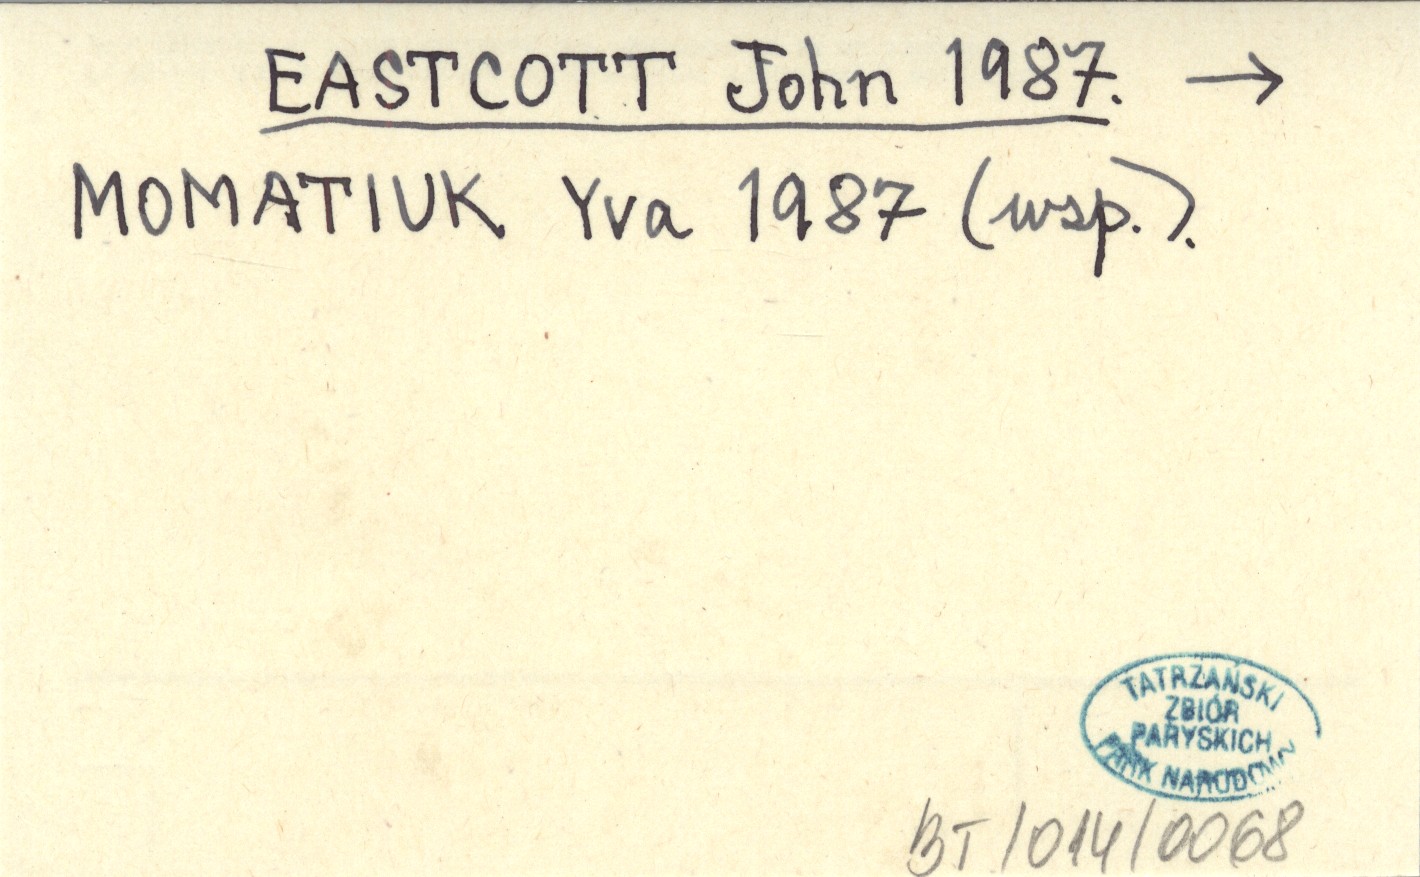 EASTCOTT John 1987. →
MOMATIUK Yva 1987 (wsp.).
TATRZAŃSKI
ZBIÓR
PARYSKICH
PARK NARODOWY
BT/014/0068